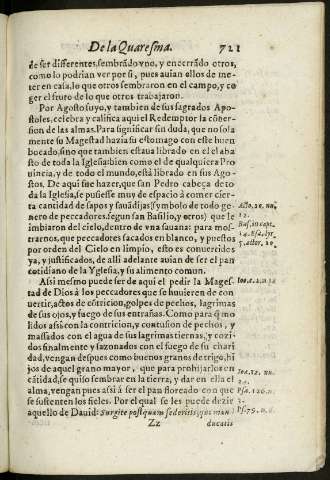 De la Quaresma. 721
de ser differentes, sembrãdo vno, y encerrãdo otros,
como lo podrian ver por si, pues auian ellos de me-
ter en casa, lo que otros sembraron en el campo, y co
ger el fruto de lo que otros trabajaron.
Por Agosto suyo, y tambien de sus sagrados Apo-
stoles, celebra y califica aqui el Redemptor la cõuer-
sion de las almas. Para significar sin duda, que no sola
mente su Magestad hazia su estomago con este buen
bocado, sino que tambien estaua librado en el el aba
sto de toda la Iglesia; bien como el de qualquiera Pro
uincia, y de todo el mundo, està librado en sus Ago-
stos. De aqui fue hazer, que san Pedro cabeça de to-
da la Iglesia, se pusiesse muy de espacio à comer cier
ta cantidad de sapos y sauãdijas (symbolo de todo ge
nero de peccadores, segun san Basilio, y otros) que le
imbiaron del cielo, dentro de vna sauana: para mos-
trarnos, que peccadores sacados en blanco, y puestos
por orden del Cielo en limpio, esto es conuertidos
ya, y justificados, de alli adelante auian de ser el pan
cotidiano de la Yglesia, y su alimento comun.
Assi mesmo puede ser de aqui el pedir la Mages-
tad de Dios à los peccadores que se huuieren de con
uertir, actos de cõtricion, golpes de pechos, lagrimas
de sus ojos, y fuego de sus entrañas. Como para q̃ mo
lidos assi con la contricion, y contusion de pechos, y
massados con el agua de sus lagrimas tiernas, y cozi-
dos finalmente y sazonados con el fuego de su chari
dad, vengan despues como buenos granos de trigo, hi
jos de aquel grano mayor, que para prohijarlos en
cãtidad, se quiso sembrar en la tierra, y dar en ella el
alma, vengan pues assi à ser el pan floreado con que
se sustenten los fieles. Por el qual se les puede dezir
aquello de Dauid: Surgite postquam sederitis, qui man
Zz ducatis
12.
Ioa. 12. nu.
24.
3.